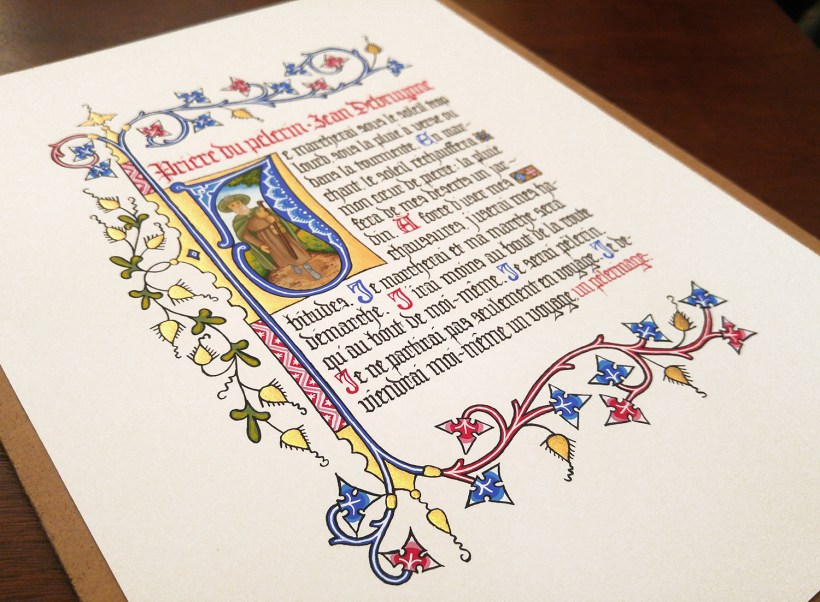 Prière du pèlerin · Jean Debruynne
Je marcherai sous le soleil trop
lourd, sous la pluie à verse ou
dans la tourmente. En mar-
chant, le soleil réchauffera
mon cœur de pierre; la pluie
fera de mes déserts un jar-
din. A force d'user mes
chaussures, j'userai mes ha-
bitudes. Je marcherai et ma marche sera
démarche. J'irai moins au bout de la route
qu'au bout de moi-même. Je serai pèlerin.
Je ne partirai pas seulement en voyage. Je de-
viendrai moi-même un voyage, un pèlerinage.